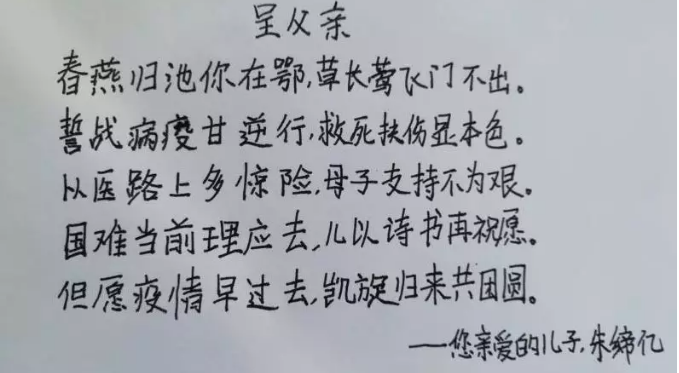 呈父亲
春燕归池你在鄂,草长莺飞门不出。
誓战病疫甘逆行,救死扶伤显本色。
从医路上多惊险,母子支持不为艰。
国难当前理应去,儿以诗书再祝愿。
但愿疫情早过去,凯旋归来共团圆。
——您亲爱的儿子,朱缔亿